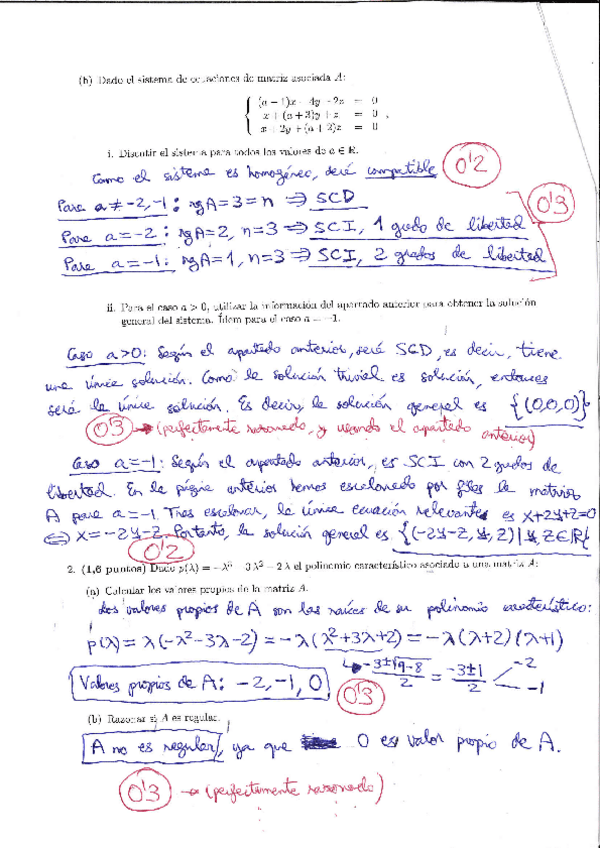 (b) Dado el sistema de ecuaciones de matriz asociada A:
(a − 1)x − 4y − 2z = 0
x + (a + 3)y + z = 0 ,
x + 2y + (a + 2)z = 0
i. Discutir el sistema para todos los valores de a ∈ ℝ.
Como el sistema es homogéneo, será compatible
0'2
Para a ≠ -2, -1 : rgA = 3 = n ⇒ SCD
0'3
Para a = -2 : rgA = 2, n = 3 ⇒ SCI, 1 grado de libertad
Para a = -1 : rgA = 1, n = 3 ⇒ SCI, 2 grados de libertad
ii. Para el caso a > 0, utilizar la información del apartado anterior para obtener la solución
general del sistema. Ídem para el caso a = −1.
Caso a>0: Según el apartado anterior, será SCD, es decir, tiene
una única solución. Como la solución trivial es solución, entonces
será la única solución. Es decir, la solución general es {(0,0,0)}
0'3 → (perfectamente razonado, y usando el apartado anterior)
Caso a=-1: Según el apartado anterior, es SCI con 2 grados de
libertad. En la página anterior hemos escalonado por filas la matriz
A para a=-1. Tras escalonar, la única ecuación relevante es x+2y+z=0
⇔ x=-2y-z. Portanto, la solución general es {(-2y-z, y, z) | y, z ∈ ℝ}
0'2
2. (1,6 puntos) Dado p(λ) = −λ³ − 3λ² − 2λ el polinomio característico asociado a una matriz A:
(a) Calcular los valores propios de la matriz A.
Los valores propios de A son las raíces de su polinomio característico:
p(λ) = λ(-λ²-3λ-2) = -λ(λ²+3λ+2) = -λ(λ+2)(λ+1)
-3±√9-8 / 2 = -3±1 / 2 -2 -1
Valores propios de A: -2, -1, 0
0'3
(b) Razonar si A es regular.
A no es regular, ya que 0 es valor propio de A.
0'3 → (perfectamente razonado)